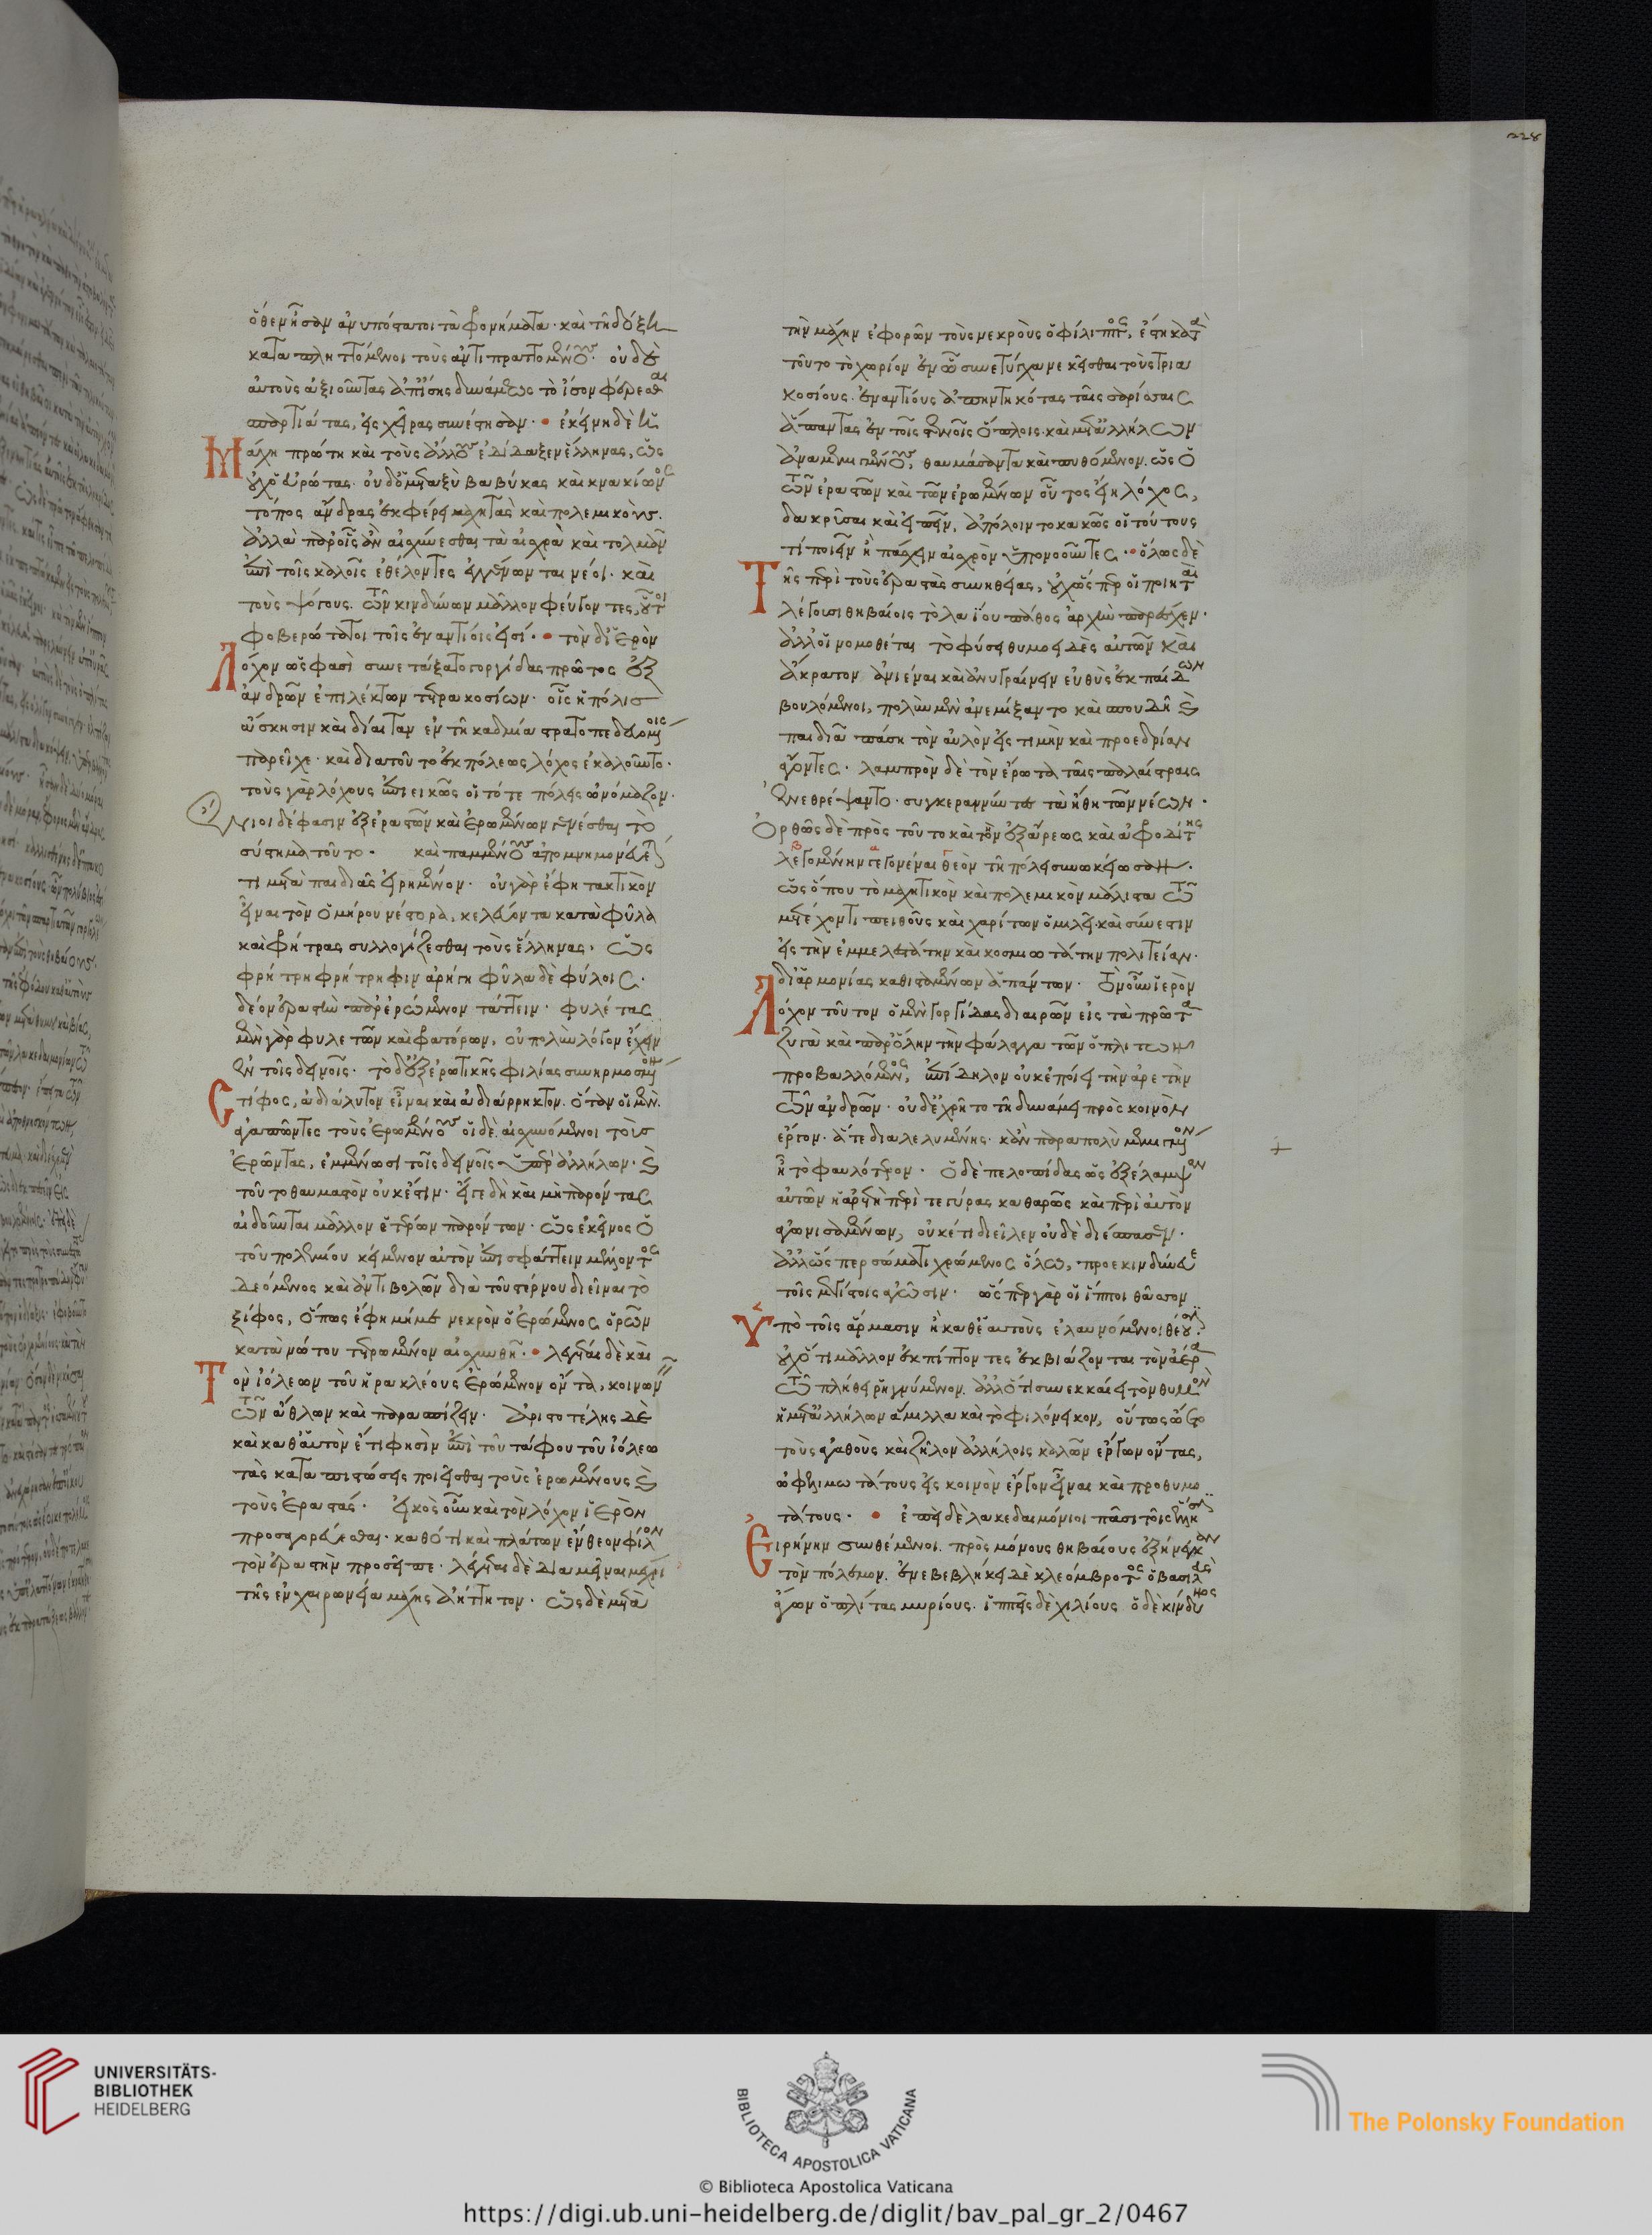 ὅθεν ἦσαν ἀνυπόστατοι τὰ φρονήματα· καὶ τῇ δόξῃ
καταπληττόμενοι τοὺς ἀντιπραττομένους· οὐδὲ
αὐτοὺς ἀξιοῦντας ἀπ' ἴσης δυνάμεως τὸ ἴσον φέρεσθαι
σπαρτιάτας, εἰς χεῖρας συνέστησαν· ἐκείνη δὲ ἡ
Μάχη πρώτη καὶ τοὺς ἄλλους ἐδίδαξεν ἕλληνας, ὡς
οὐχ' ὁ εὐρώτας· οὐδ' ὁ μεταξὺ βαβύκας καὶ κνακιῶνος
τόπος ἄνδρας ἐκφέρει μαχητὰς καὶ πολεμικούς.
ἀλλὰ παρ' οἷς ἂν αἰσχύνεσθαι τὰ αἰσχρὰ καὶ τολμᾶν
ἐπὶ τοῖς καλοῖς ἐθέλοντες ἐγγένωνται νέοι· καὶ
τοὺς ψόγους τῶν κινδύνων μᾶλλον φεύγοντες, οὗτοι
φοβερώτατοι τοῖς ἐναντίοις εἰσί· τὸν δ' ἱερὸν
Λόχον ὥς φασι συνετάξατο γοργίδας πρῶτος ἐξ
ἀνδρῶν ἐπιλέκτων τριακοσίων· οἷς ἡ πόλις
ἄσκησιν καὶ δίαιταν ἐν τῇ καδμία στρατοπεδευομένοις
παρεῖχε· καὶ διατοῦτο ἐκ πόλεως λόχος ἐκαλοῦντο·
τοὺς γὰρ λόχους ἐπιεικῶς οἱ τότε πόλεις ὠνόμαζον·
ἔνιοι δέ φασιν ἐξ ἐραστῶν καὶ ἐρωμένων γενέσθαι τὸ
σύστημα τοῦτο· καὶ παμμένους ἀπομνημονεύεταί
τι μετὰ παιδιᾶς εἰρημένον· οὐ γὰρ ἔφη τακτικὸν
εἶναι τὸν ὁμήρου νέστορα, κελεύοντα κατὰ φῦλα
καὶ φρήτρας συλλογίζεσθαι τοὺς ἕλληνας· ὡς
φρήτρη φρήτρηφιν ἀρήγη φῦλα δὲ φύλοις·
δέον ἐραστὴν παρ' ἐρώμενον τάττειν· φυλέτας
μὲν γὰρ φυλετῶν καὶ φρατόρων, οὐ πολὺν λόγον ἔχειν
ἐν τοῖς δεινοῖς· τὸ δ' ἐξ ἐρωτικῆς φιλίας συνηρμοσμένον
Στίφος, ἀδιάλυτον εἶναι καὶ ἀδιάρρηκτον. ὅταν οἱ μὲν.
ἀγαπῶντες τοὺς ἐρωμένους οἱ δὲ αἰσχυνόμενοι τοὺς
ἐρῶντας, ἐμμένωσι τοῖς δεινοῖς ὑπὲρ ἀλλήλων· καὶ
τοῦτο θαυμαστὸν οὐκ ἔστιν· εἴγε δὴ καὶ μὴ παρόντας
αἰδοῦνται μᾶλλον ἑτέρων παρόντων· ὡς ἐκεῖνος ὁ
τοῦ πολεμίου κείμενον αὐτὸν ἐπισφάττειν μέλλοντος
δεόμενος καὶ ἀντιβολῶν διὰ τοῦ στέρνου διεῖναι τὸ
ξίφος, ὅπως ἔφη μή με νεκρὸν ὁ ἐρώμενος ὁρῶν
κατὰ νώτου τετρωμένον αἰσχυνθῇ· λέγεται δὲ καὶ
Τὸν ἰόλεων τοῦ ἡρακλέους ἐρώμενον ὄντα, κοινωνεῖν
τῶν ἄθλων καὶ παρασπίζειν· ἀριστοτέλης δὲ
καὶ καθ' αὑτὸν ἔτι φησὶν ἐπὶ τοῦ τάφου τοῦ ἰόλεω
τὰς καταπιστώσεις ποιεῖσθαι τοὺς ἐρωμένους καὶ
τοὺς ἐραστάς· εἰκὸς οὖν καὶ τὸν λόχον ἱερὸν
προσαγορεύεσθαι· καθότι καὶ πλάτων ἔνθεον φίλον
τὸν ἐραστὴν προσεῖπε· λέγεται δὲ διαμεῖναι μέχρι
τῆς ἐν χαιρωνεία μάχης ἀήττητον· ὡς δὲ μετὰ
τὴν μάχην ἐφορῶν τοὺς νεκροὺς ὁ φίλιππος, ἔστη κατὰ
τοῦτο τὸ χωρίον ἐν ᾧ συνετύγχανε κεῖσθαι τοὺς τρια
κοσίους· ἐναντίους ἀπηντηκότας ταῖς σαρίσαις
ἅπαντας ἐν τοῖς στενοῖς ὅπλοις· καὶ μετ' ἀλλήλων
ἀναμεμιγμένους, θαυμάσαντα καὶ πυθόμενον. ὡς ὁ
τῶν ἐραστῶν καὶ τῶν ἐρωμένων οὗτος εἴη λόχος,
δακρῦσαι καὶ εἰπεῖν, ἀπόλοιντο κακῶς οἱ τούτους
τί ποιεῖν ἢ πάσχειν αἰσχρὸν ὑπονοοῦντες· ὅλως δὲ
Τῆς περὶ τοὺς ἐραστὰς συνηθείας, οὐχ' ὥσπερ οἱ ποιηταὶ
λέγουσι θηβαίοις τὸ λαΐου πάθος ἀρχὴν παρασχεῖν·
ἀλλ' οἱ νομοθέται τὸ φύσει θυμοειδὲς αὐτῶν καὶ
ἄκρατον ἀνιέναι καὶ ἀνυγραίνειν εὐθὺς ἐκ παίδων
βουλόμενοι, πολὺν μὲν ἀνεμίξαντο καὶ σπουδῇ καὶ
παιδιᾷ πάσῃ τὸν αὐλὸν εἰς τιμὴν καὶ προεδρίαν
ἄγοντες· λαμπρὸν δὲ τὸν ἔρωτα ταῖς παλαίστραις
ἐνεθρέψαντο· συγκεραννύντες τὰ ἤθη τῶν νέων·
Ὀρθῶς δὲ πρὸς τοῦτο καὶ τὴν ἐξ ἄρεως καὶ ἀφροδίτης
λεγομένην γεγονέναι θεὸν τῇ πόλει συνωκείωσαν·
ὡς ὅπου τὸ μαχητικὸν καὶ πολεμικὸν μάλιστα τῷ
μετέχοντι πειθοῦς καὶ χαρίτων ὁμιλεῖ· καὶ σύνεστιν
εἰς τὴν ἐμμελεστάτην καὶ κοσμιωτάτην πολιτείαν·
δι' ἁρμονίας καθισταμένων ἁπάντων· τὸν οὖν ἱερὸν
Λόχον τοῦτον ὁ μὲν γοργίδας διαιρῶν εἰς τὰ πρῶτα
ζυγὰ καὶ παρ' ὅλην τὴν φάλαγγα τῶν ὁπλιτῶν
προβαλλόμενος, ἐπίδηλον οὐκ ἐποίει τὴν ἀρετὴν
τῶν ἀνδρῶν· οὐδ' ἐχρῆτο τῇ δυνάμει πρὸς κοινὸν
ἔργον· ἅτε διαλελυμένης· κἂν παραπολὺ μεμιγμένον
ἢ τὸ φαυλότερον· ὁ δὲ πελοπίδας ὡς ἐξέλαμψεν
αὐτῶν ἡ ἀρετὴ περί τε γύρας καθαρῶς καὶ περὶ αὐτὸν
ἀγωνισαμένων, οὐκέτι διεῖλεν οὐδὲ διέσπασεν·
ἀλλ' ὥσπερ σώματι χρώμενος ὅλῳ, προεκινδύνευε
τοῖς μεγίστοις ἀγῶσιν· ὥσπερ γὰρ οἱ ἵπποι θᾶσσον
Ὑπὸ τοῖς ἅρμασιν ἢ καθ' αὑτοὺς ἐλαυνόμενοι θέουσιν·
οὐχ' ὅτι μᾶλλον ἐκπίπτοντες ἐκβιάζονται τὸν ἀέρα
τῷ πλήθει ῥηγνύμενον. ἀλλ' ὅτι συνεκκαίει τὸν θυμὸν
ἡ μετ' ἀλλήλων ἅμιλλα καὶ τὸ φιλόνεικον, οὕτως ᾤετο
τοὺς ἀγαθοὺς καὶ ζῆλον ἀλλήλοις καλῶν ἔργων ὄντας,
ὠφελιμωτάτους εἰς κοινὸν ἔργον εἶναι καὶ προθυμο
τάτους· ἐπεὶ δὲ λακεδαιμόνιοι πᾶσι τοῖς ἕλλησιν
Εἰρήνην συνθέμενοι. πρὸς μόνους θηβαίους ἐξήνεγκαν
τὸν πόλεμον. ἐνεβεβλήκει δὲ κλεόμβροτος ὁ βασιλεὺς
ἄγων ὁπλίτας μυρίους. ἱππεῖς δὲ χιλίους ὁ δὲ κίνδυνος
228
UNIVERSITÄTS-
BIBLIOTHEK
HEIDELBERG
BIBLIOTECA APOSTOLICA VATICANA
The Polonsky Foundation
© Biblioteca Apostolica Vaticana
https://digi.ub.uni-heidelberg.de/diglit/bav_pal_gr_2/0467